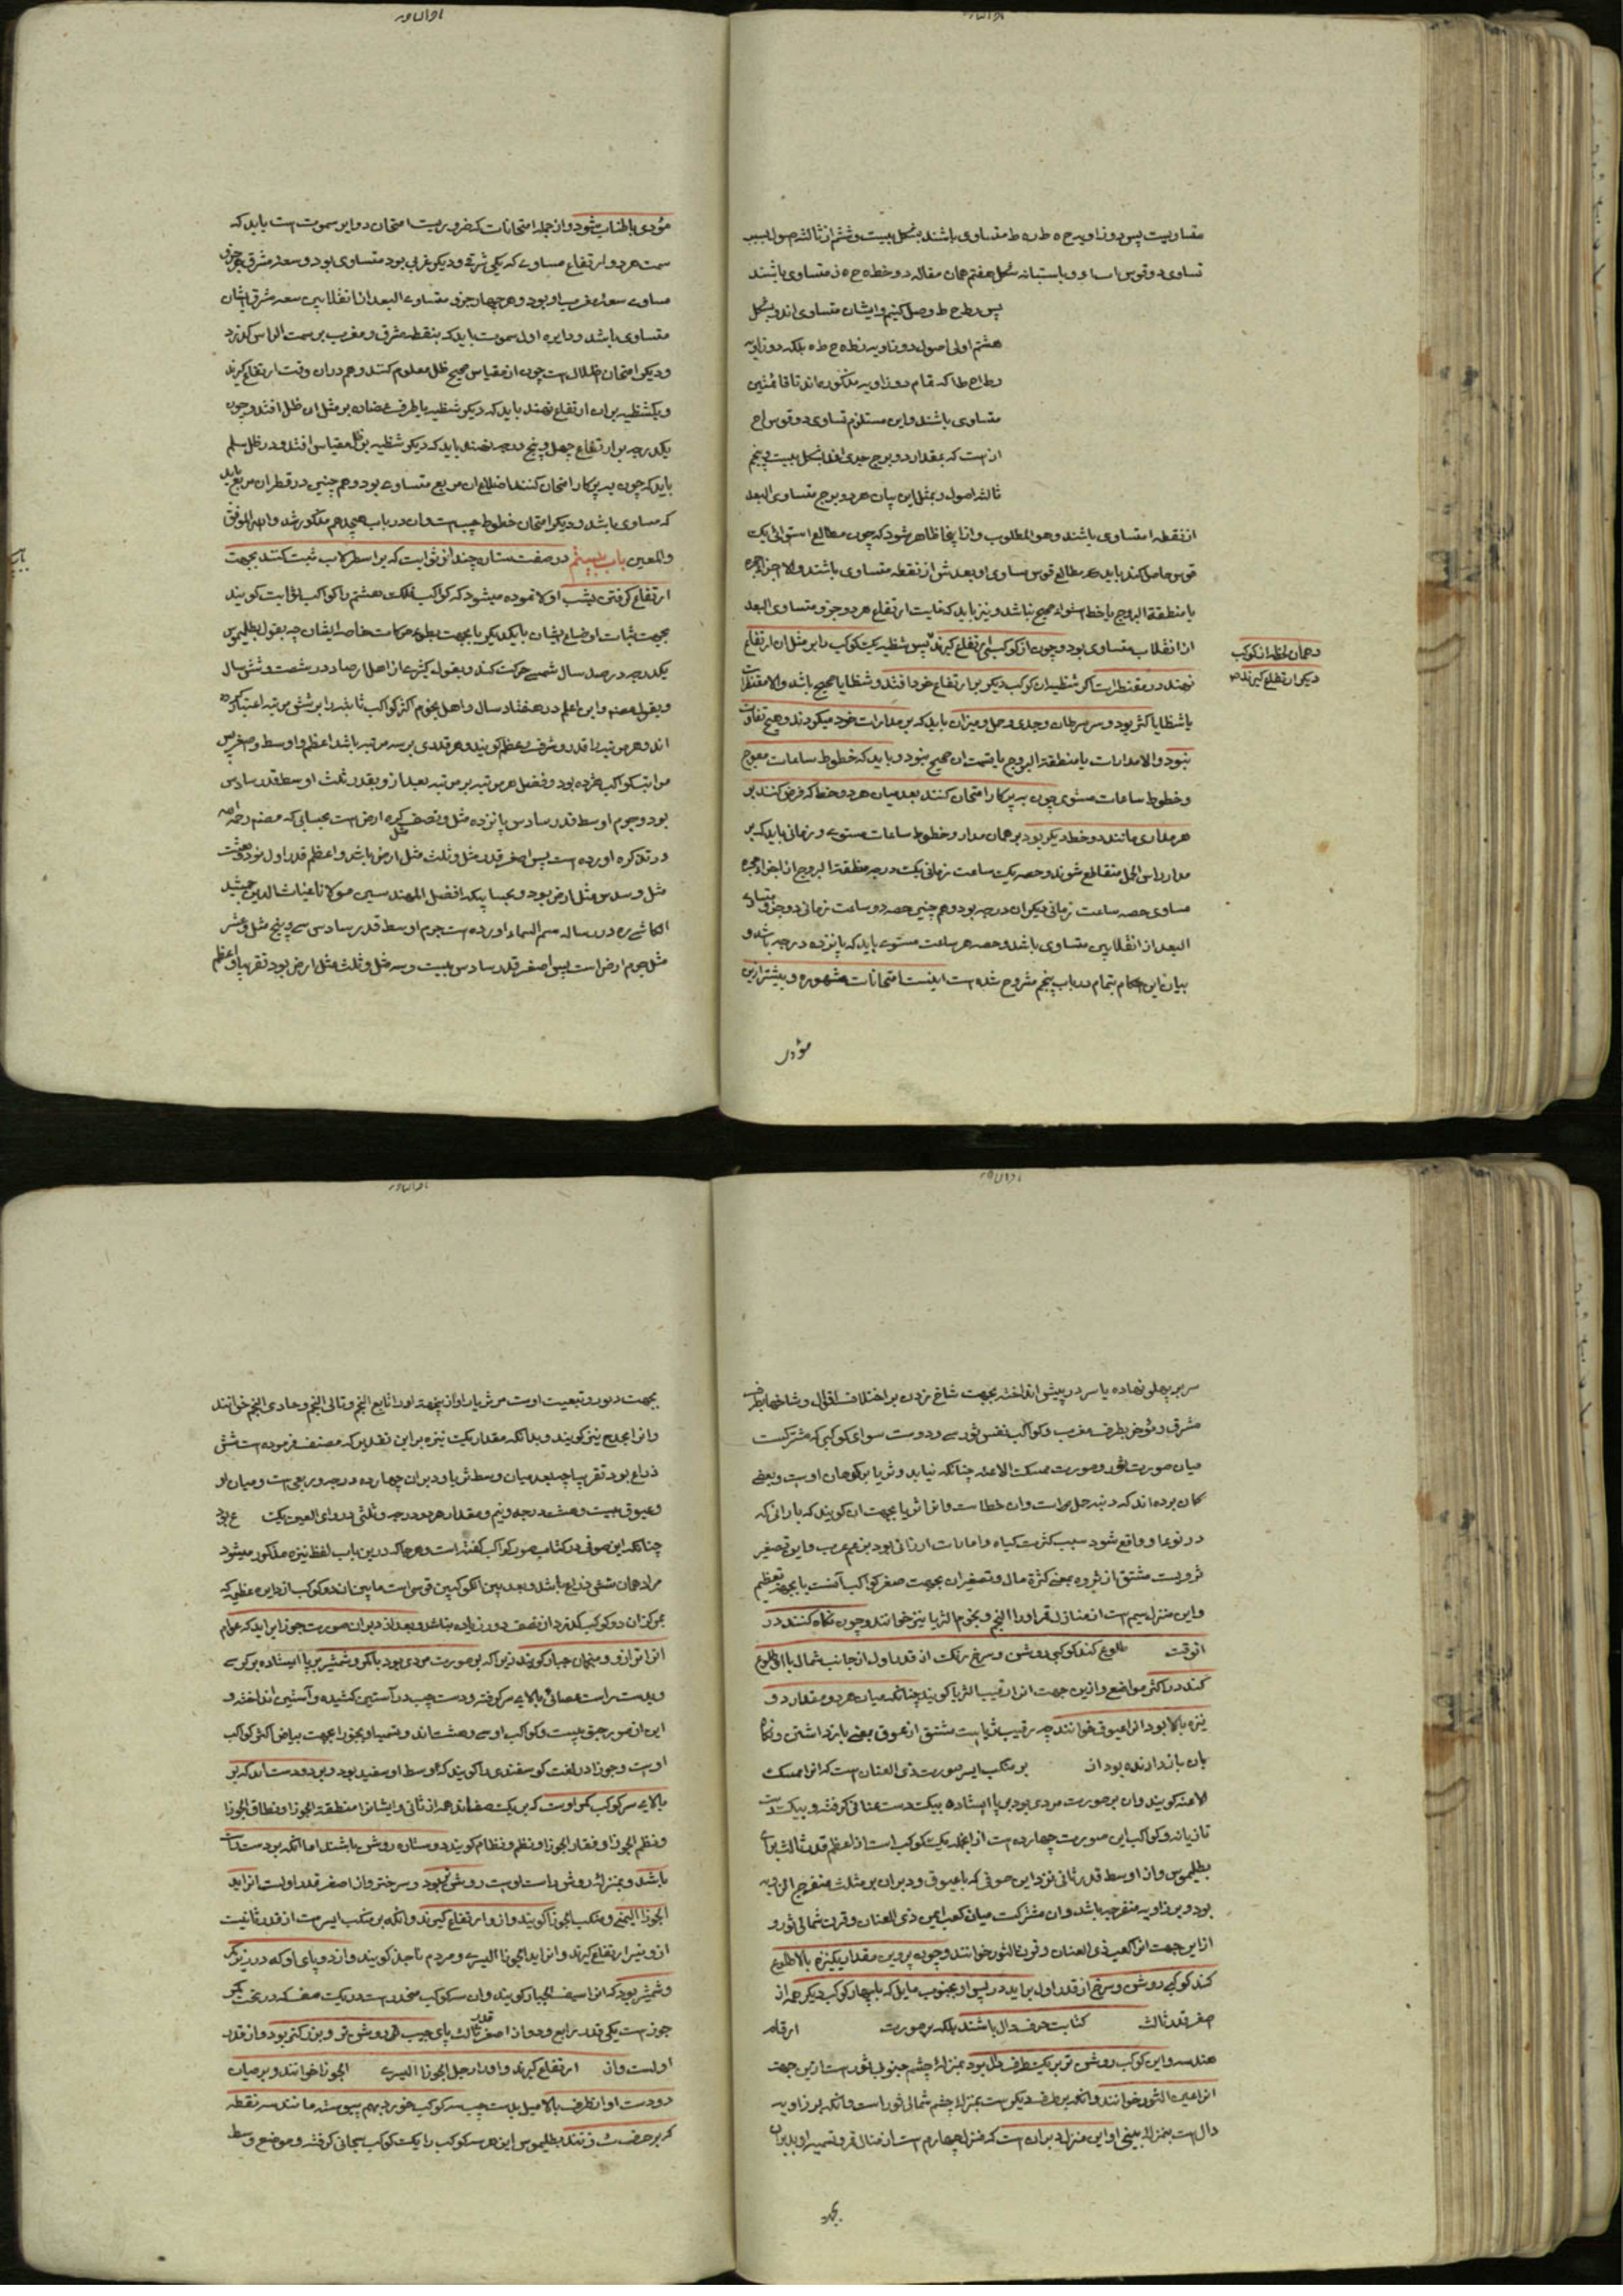 متساویست پس دو زاویه ح ه ط ر ه ط متساوی باشند بشکل بیست و ششم از ثالثه اصول بسبب
تساوی دو قوس و باستبانه شکل هفتم همان مقاله دو خط ه ح ه ز متساوی باشند
پس ح ط وصل کنیم و ایشان متساوی اند و بشکل
هشتم اولی اصول دو زاویه ح ط ه بلکه دو زاویه
که تمام دو زاویه مذکوره اند تا قائمتین
متساوی باشند و این مستلزم تساوی دو قوس اح
از است که بمقدار دو برج جدی اند بشکل بیست و پنجم
ثالثه اصول و بمثل این بیان هر دو برج متساوی البعد
از نقطه ا متساوی باشند و هو المطلوب و از اینجا ظاهر شود که چون مطالع استوائی یک
قوس حاصل کند باید که مطالع قوس مساوی او بعدش از نقطه متساوی باشند و الا اجزاء حجره
یا منطقة البروج یا خط استواء صحیح نباشد و نیز باید که غایت ارتفاع هر دو جزو متساوی البعد
از انقلاب متساوی بود و چون از کوکبی ارتفاع گیرند پس شظیه کوکب را بر مثل ان ارتفاع
نهند در مقنطرات اگر شظیه ان کوکب دیگر بر ارتفاع خود افتد و شظایا صحیح باشد و الا مقنطرات
یا شظایا کثر بود و سر سرطان و جدی و حمل و میزان باید که بر مدارات خود میگردند و هیچ تفاوت
نبود و الا مدارات یا منطقة البروج یا قسمت ان صحیح نبود و باید که خطوط ساعات معوج
و خطوط ساعات مستوی چون به پرکار امتحان کنند بعد میان هر دو خط که فرض کنند بر
هر مداری مانند دو خط دیگر بود بر همان مدار و خطوط ساعات مستوی و زمانی باید که بر
مدار راس الحمل متقاطع شوند و حصه یک ساعت زمانی یک درجه منطقة البروج از اجزاء حجره
مساوی حصه ساعت زمانی دیگر ان درجه بود و هم چنین حصه دو ساعت زمانی دو جزو متساوی
البعد از انقلابین متساوی باشد و حصه هر ساعت مستوی باید که پانزده درجه باشد و
بیان این احکام بتمام در باب پنجم مشروح شده است اینست امتحانات مشهوره و بیشتر ازین
مؤدی
و همان لحظه از کوکب
دیگر ارتفاع گیرند صح
مؤدی باطناب شود و از جمله امتحانات که ضروریست امتحان دوایر سموت است باید که
سمت هر دو ارتفاع مساوی که یکی شرقی و دیگر غربی بود متساوی بود و سعه مشرق هر جزو
مساوی سعه مغرب او بود و هر چهار جزو متساوی البعد از انقلابین سعه مشرق ایشان
متساوی باشد و دایره اول سموت باید که بنقطه مشرق و مغرب بر سمت الراس گذرد
و دیگر امتحان اظلال است چون از مقیاس صحیح ظل معلوم کنند و هم در ان وقت ارتفاع گیرند
و یک شظیه بر ان ارتفاع نهند باید که دیگر شظیه یا طرف عضاده بر مثل ان ظل افتد و چون
یکدرجه بر ارتفاع چهل و پنج درجه نهند باید که دیگر شظیه بر ظل مقیاس افتد و در ظل سلم
باید که چون به پرکار امتحان کنند اضلاع ان مربع متساوی بود و هم چنین دو قطر ان مربع باید
که مساوی باشد و دیگر امتحان خطوط جیب است و ان در باب هجدهم مذکور شد و الله الموفق
و المعین باب بیستم در صفت ستاره چند از ثوابت که بر اسطرلاب ثبت کنند بجهت
ارتفاع گرفتن بشب اولا نموده میشود که کواکب فلک هشتم را کواکب ثوابت گویند
بجهت ثبات اوضاع ایشان با یکدیگر یا بجهت بطوء حرکات خاصه ایشان چه بقول بطلیموس
یکدرجه در صد سال شمسی حرکت کند و بقول اکثری از اهل ارصاد در شصت و شش سال
و بقول مصنف و ابن اعلم در هفتاد سال و اهل نجوم اکثر کواکب ثابته را بر شش مرتبه اعتبار کرده
اند و هر مرتبه را قدر و شرف و عظم گویند و هر قدری بر سه مرتبه باشد اعظم و اوسط و اصغر پس
مراتب کواکب هژده بود و فضل هر مرتبه بر مرتبه بعد از و بقدر ثلث اوسط قدر سادس
بود و جرم اوسط قدر سادس پانزده مثل و نصف کره ارض است بحسابی که مصنف رحمه الله
در تذکره آورده است پس اصغر قدر مثل و ثلث مثل ارض باشد و اعظم قدر اول نود و هشت
مثل و سدس مثل ارض بود و بحسابیکه افضل المهندسین مولانا غیاث الدین جمشید
الکاشی ره در رساله سلم السماء آورده است جرم اوسط قدر سادس سی و پنج مثل و عشر
مثل جرم ارض است پس اصغر قدر سادس بیست و سه مثل و ثلث مثل ارض بود تقریبا و اعظم
سر بر پهلو نهاده یا سر در پیش انداخته بجهت شاخ زدن بر اختلاف اقوال و شاخها بطرف
مشرق و مؤخر بطرف مغرب و کواکب نفس ثور سی و دوست سوای کوکبی که مشترکست
میان صورت ثور و صورت ممسک الاعنه چنانکه بیاید و ثریا بر کوهان اوست و بعضی
گمان برده اند که دنبه حمل است و ان خطاست و انرا ثریا بجهت ان گویند که بارانی که
در نوء او واقع شود سبب کثرت گیاه و امارات ارزانی بود بزعم عرب و این تصغیر
ثرویست مشتق از ثروه بمعنی کثرة مال و تصغیر ان بجهت صغر کواکب آنست یا بجهة تعظیم
و این منزل سیم است از منازل قمر او را النجم و نجوم الثریا نیز خوانند و چون نگاه کنند در
انوقت طلوع کند کوکبی روشن و سرخ رنگ از قدر اول از جانب شمال با او طلوع
کند در اکثر مواضع و ازین جهت انرا رقیب الثریا گویند چنانکه میان هر دو مقدار دو
نیزه بالا بود انرا عیوق خوانند چه رقیب ثریا است مشتق از عوق بمعنی باز داشتن و نگاه
بان بازدارنده بود از بر منکب ایسر صورت ذی العنان است که انرا ممسک
الاعنه گویند و ان بر صورت مردی بود بر پا ایستاده بیک دست عنانی گرفته و بیک دست
تازیانه و کواکب این صورت چهارده است از انجمله یک کوکب است از اعظم قدر ثالث برای
بطلیموس و از اوسط قدر ثانی نزد ابن صوفی که با عیوق و دبران بر مثلث منفرج الزاویه
بود و بر زاویه منفرجه باشد و ان مشترکست میان کعب ایمن ذی العنان و قرن شمالی ثور و
از این جهت انرا کعب ذی العنان و قرن الثور خوانند و چون پروین مقدار یک نیزه بالا طلوع
کند کوکبی روشن و سرخ از قدر اول براید در پس او بجنوب مایل که با چهار کوکب دیگر همه از
اصغر قدر ثالث کتابت حرف دال باشند بلکه بر صورت ارقام
هندسه و این کوکب روشن تر بر یک طرف دال بود بمنزله چشم جنوبی ثور است ازین جهت
انرا عین الثور خوانند و انکه بر طرف دیگرست بمنزله چشم شمالی ثور است و انکه بر زاویه
دال است بمنزله بینی او و این منزل دبران است که منزل چهارم است از منازل قمر و تسمیه او بدبران
بجهت
بجهت دبور و تبعیت اوست مر ثریا را و از ینجهة او را تابع النجم و تالی النجم و حادی النجم خوانند
و انرا مجدح نیز گویند و بدانکه مقدار یک نیزه بر این تقدیر که مصنف فرموده است شش
ذراع بود تقریبا چه بعد میان وسط ثریا و دبران چهارده درجه و ربعی است و میان او
و عیوق بیست و هشت درجه و نیم و مقدار هر دو درجه و ثلثی در رای العین یک
چنانکه ابن صوفی در کتاب صور کواکب گفته است و هر جا که درین باب لفظ نیزه مذکور میشود
مراد همان شش ذراع باشد و بعد بین الکوکبین قوسی است مابین ان دو کوکب از دایره عظیمه که
بمرکز ان دو کوکب گذرد از نصف دور زیاده نباشد و بعد از دبران صورت جوزا براید که عوام
انرا ترازو و منجمان جبار گویند زیرا که بر صورت مردی بود با کمر و شمشیر بر پا ایستاده بر کرسی
و بدست راست عصائی بالای سر گرفته و دست چپ در آستین کشیده و آستین انداخته و
این از صور جنوبیست و کواکب او سی و هشت اند و تسمیه او بجوزا بجهت بیاض اکثر کواکب
اوست و جوزا در لغت گوسفندی را گویند که اوسط او سفید بود و بر دو دست اند که بر
بالای سه کوکب کمر اوست که بر یک صف اند همه از ثانی و ایشانرا منطقة الجوزا و نطاق الجوزا
و نظم الجوزا و فقار الجوزا و نظم و نظام گویند دو ستاره روشن باشند اما انکه بر دست راست
باشد و بمنزله دوش راست اوست روشن تر بود و سرختر و از اصغر قدر اولست انرا ید
الجوزا الیمنی و منکب الجوزا گویند و از و ارتفاع گیرند و انکه بر منکب ایسر است از قدر ثانیست
از و نیز ارتفاع گیرند و انرا ید الجوزا الیسری و مرزم ناجذ گویند و از دو پای او که در زیر کمر
و شمشیر بود که انرا سیف الجبار گویند و ان سه کوکب منحدر است در یک صف که در تحت کمر
جوزاست یکی قدر رابع و دو از اصغر قدر ثالث پای چپ روشن تر و بزرگتر بود و از قدر
اولست و از ارتفاع گیرند و او را رجل الجوزا الیسری الجوزا خوانند و بر میان
دو دست او از طرف بالا میل بدست چپ سه کوکب خورد بهم پیوسته مانند سه نقطه
که بر حرف ث زنند بطلیموس این هر سه کوکب را یک کوکب سحابی گرفته و موضع وسط